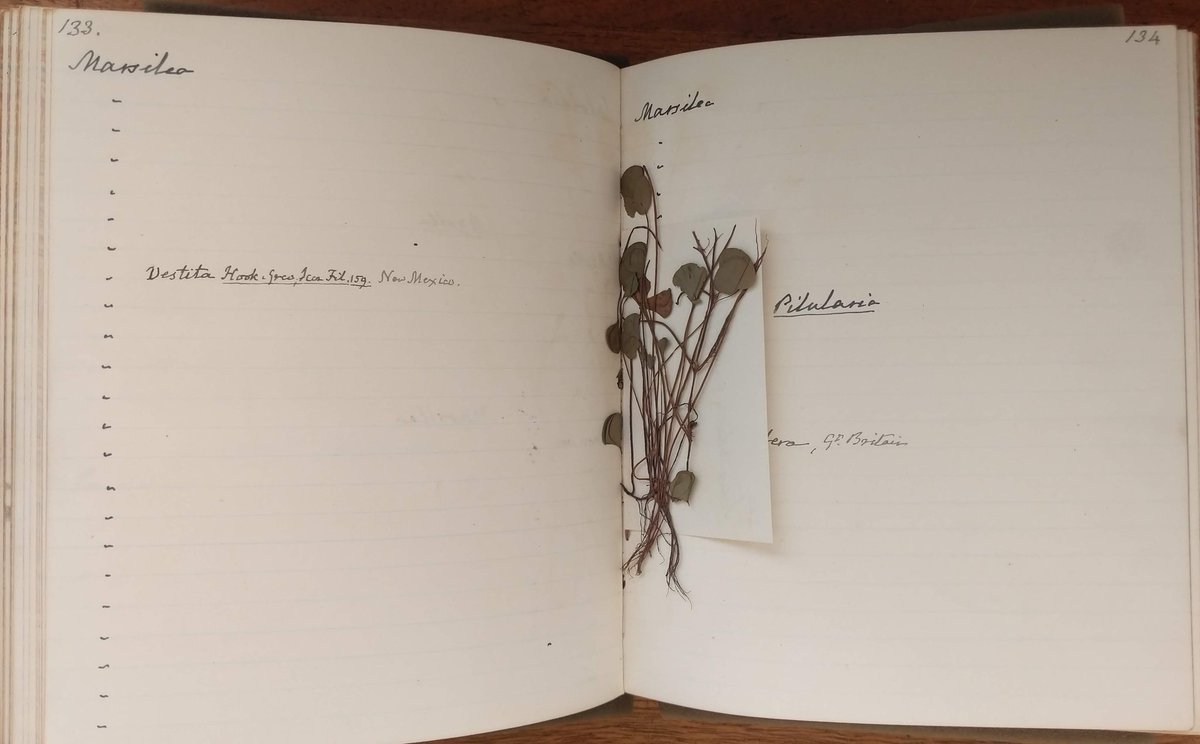 133.
Marsilea
Vestita Hook. Grev. Icon Fil. 159. New Mexico.
134
Marsilea
Pilularia
fera, Gt. Britain